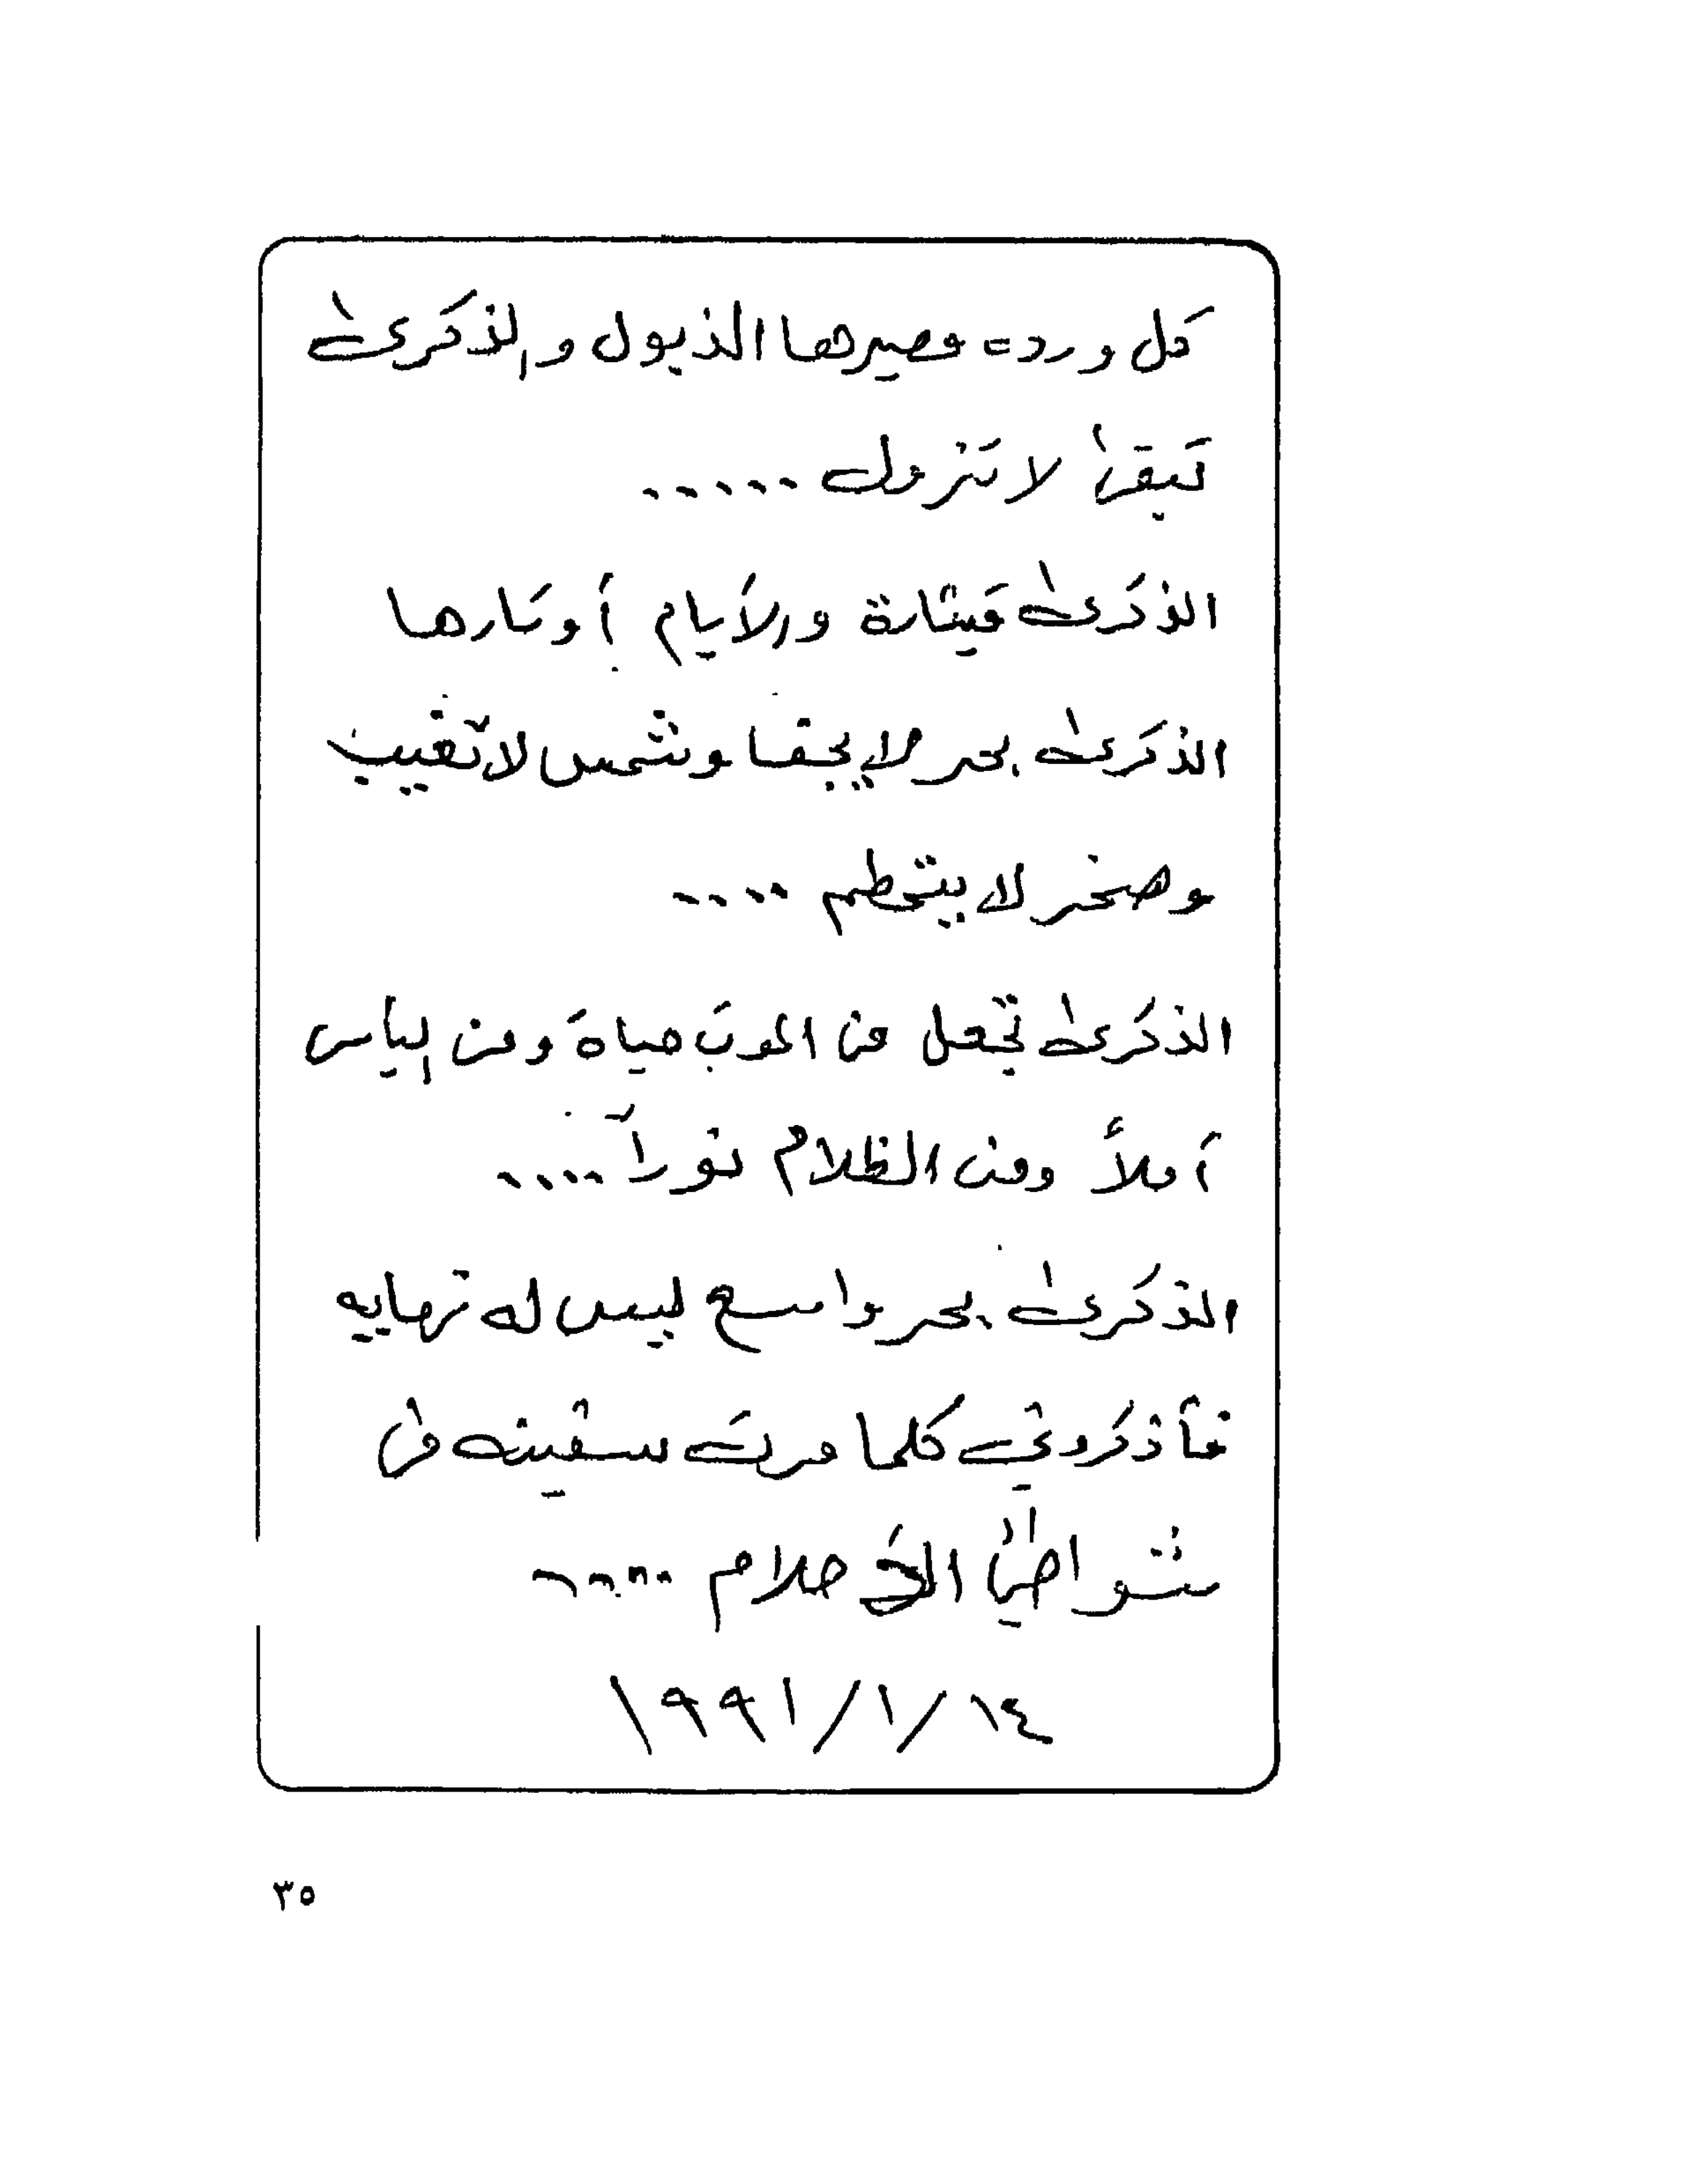 كل ورده مصيرها الذبول والذكرى
تبقى لا تزول .....
الذكرى قيثارة والأيام أوتارها
الذكرى بحر لا يجف وشمس لا تغيب
وصخر لا يتحطم ....
الذكرى تجعل من الموت حياة ومن اليأس
أملاً ومن الظلام نوراً ....
الذكرى بحر واسع ليس له نهايه
فأذكروني كلما مرت سفينه في
شواطئ الأحلام ....
١٤/١/١٩٩١
٣٥